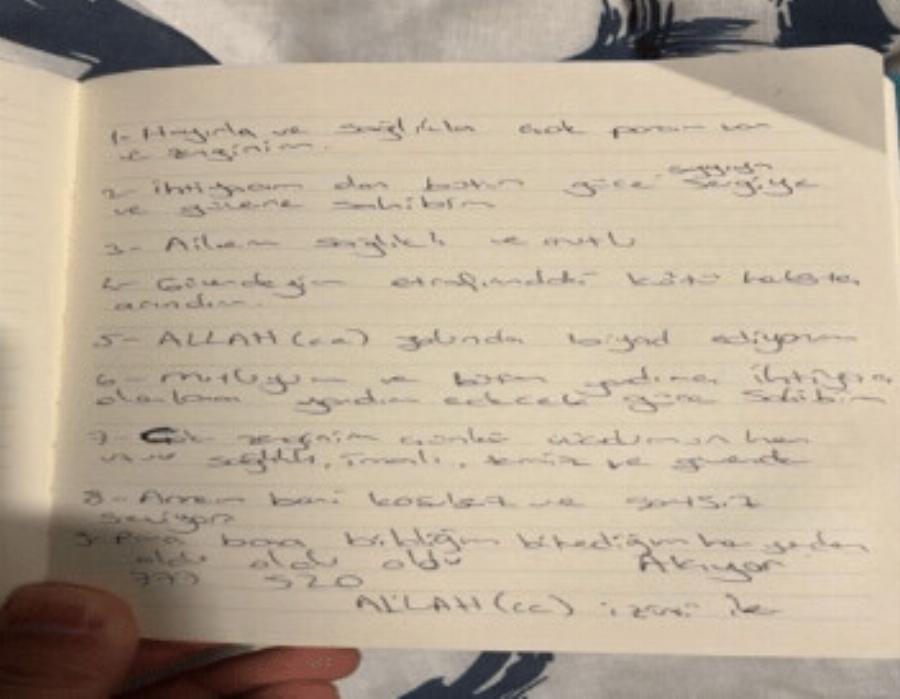 1- Hayırla ve sağlıkla çok param var
ve zenginim.
2- ihtiyacım olan bütün güce saygıya sevgiye
ve güvene sahibim
3- Ailem sağlıklı ve mutlu
4- Güvendeyim etrafımdaki kötü
arındım.
5- ALLAH (cc) yolunda ediyorum
6- Mutluyum ve bütün yardıma ihtiyacı
olanlara yardım edecek güce sahibim
7- Çok zenginim çünkü vücudumun her
sağlıklı, temiz ve güvende
8- Annem beni koşulsuz ve
seviyor
9- Para bana bildiğim bilmediğim her yerden
oldu oldu oldu Akıyor
777 520
ALLAH (cc) izni ile